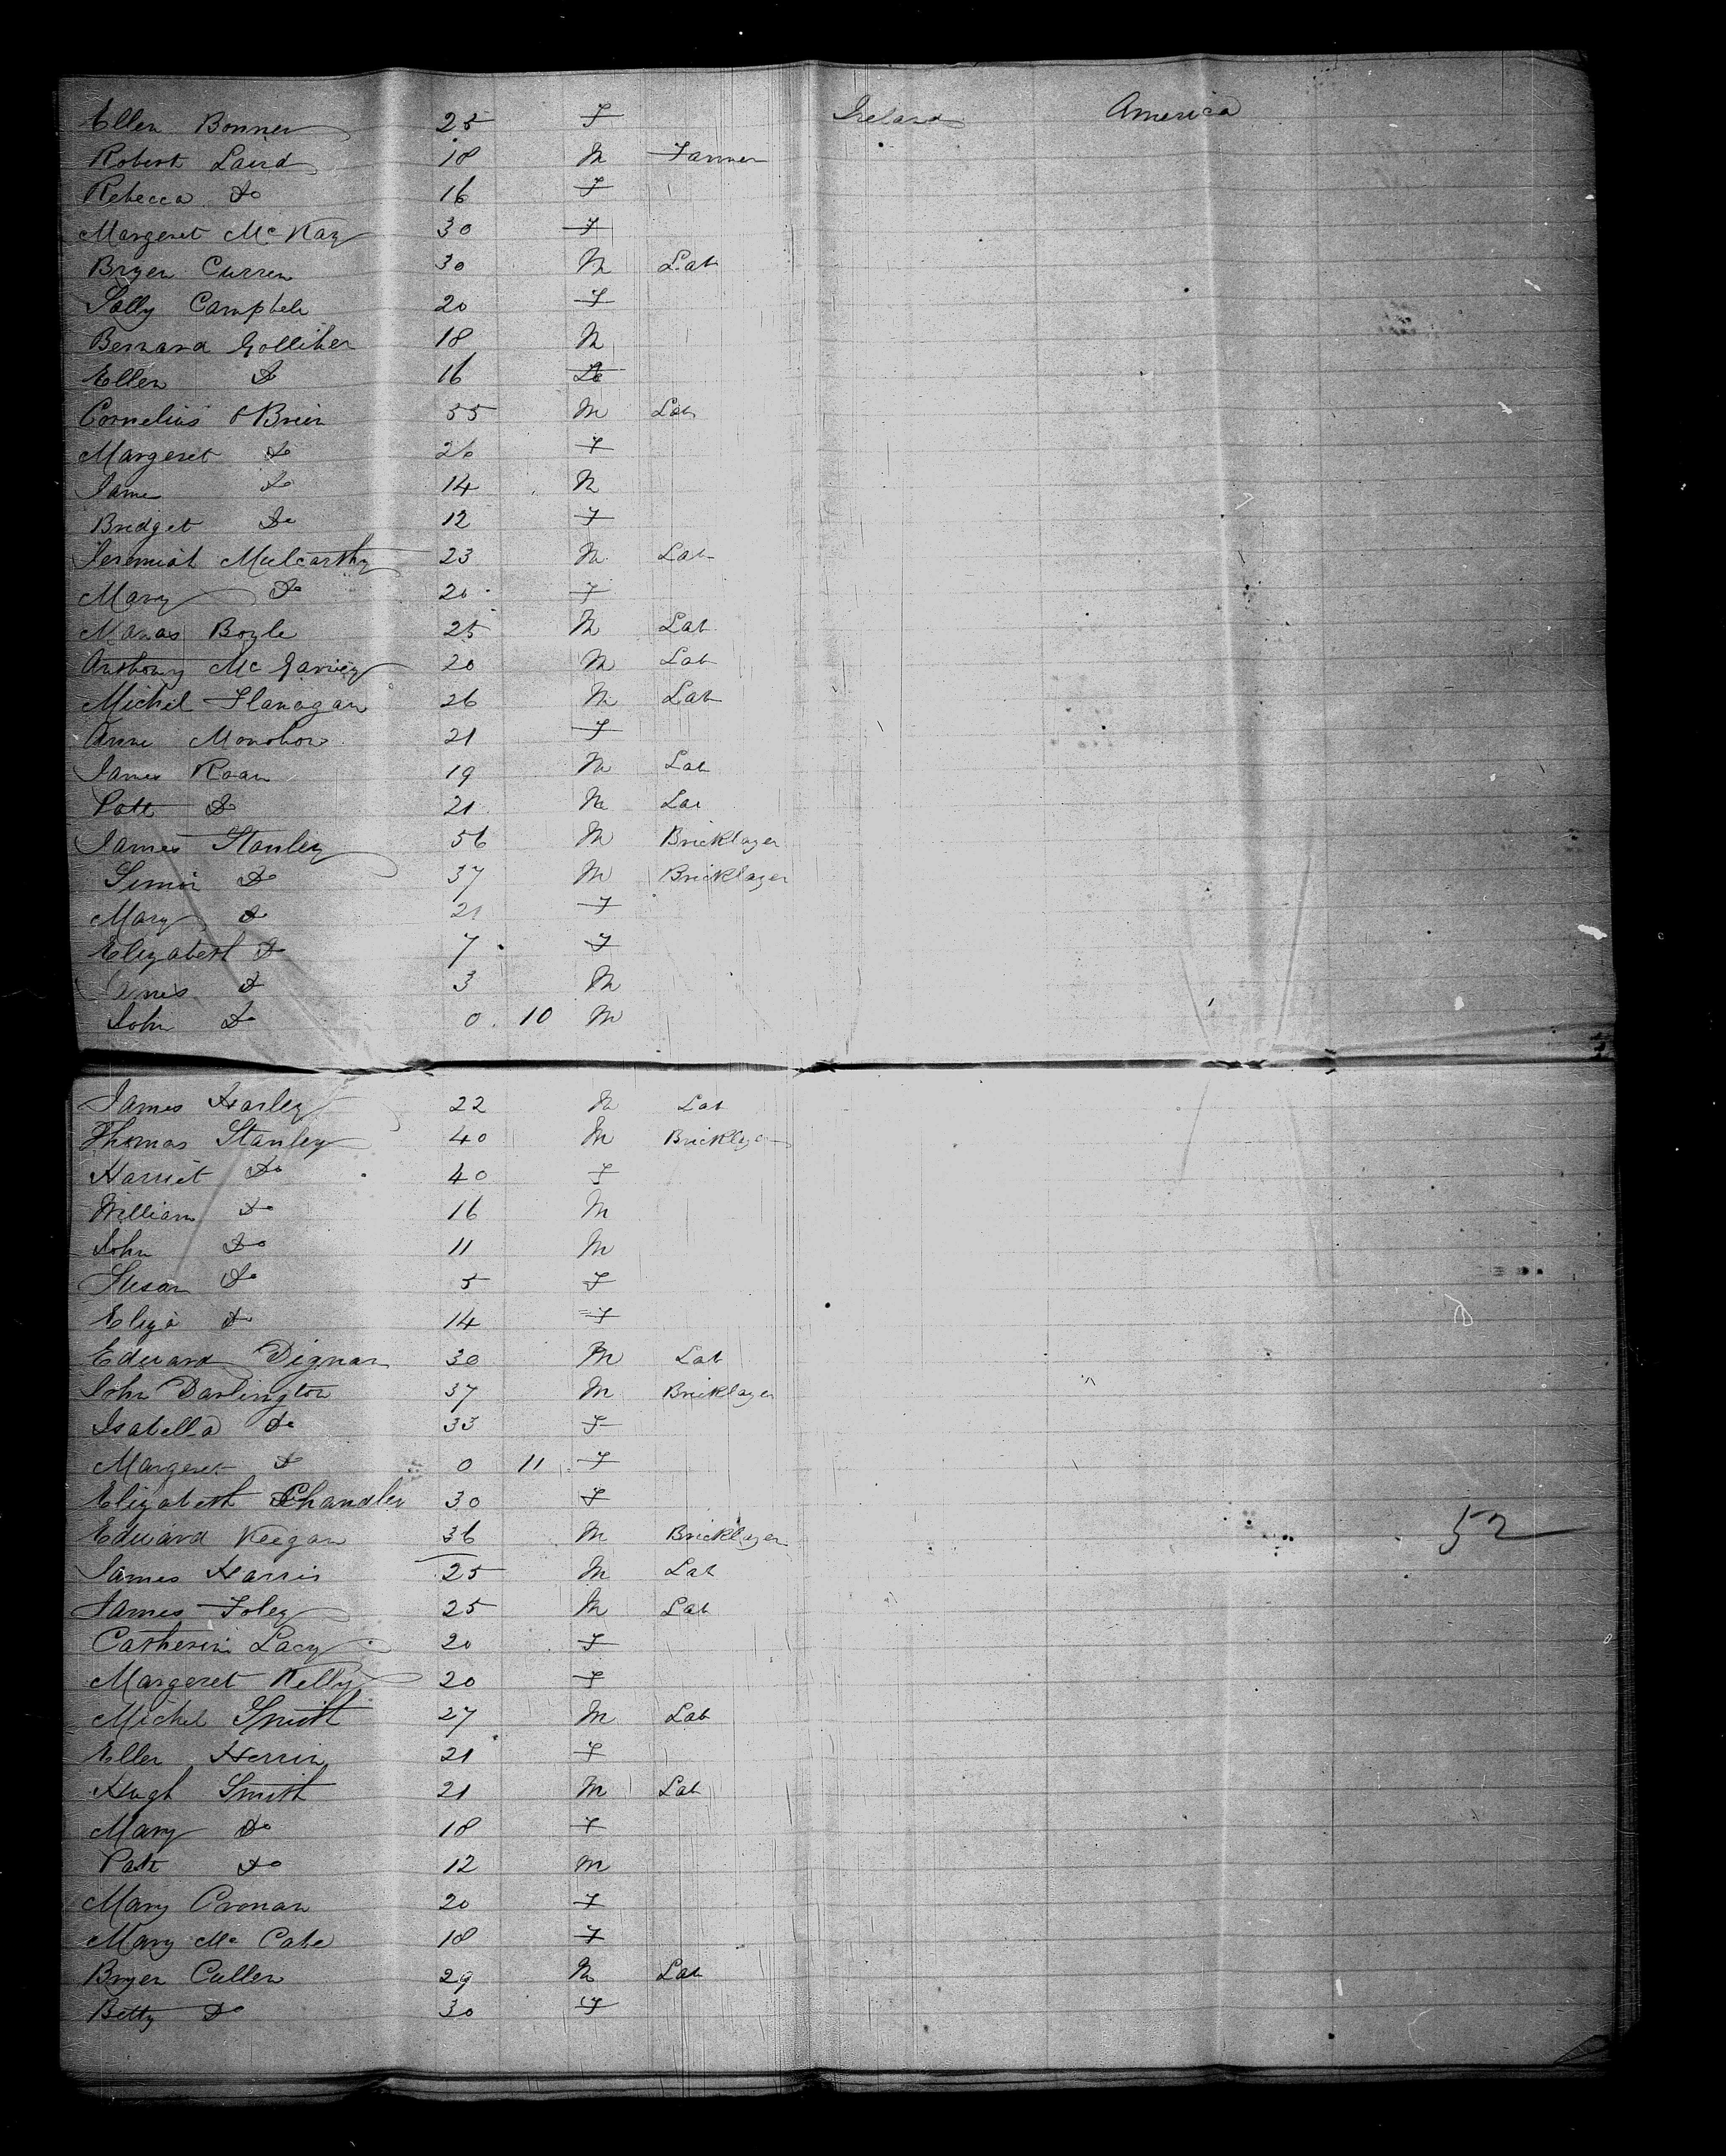 Ellen Bonner 25 F Ireland America
Robert Laird 18 M Farmer
Rebecca Do 16 F
Margeret McKay 30 F
Bryen Curren 30 M Lab
Sally Campbell 20 F
Bernard Golliher 18 M
Ellen Do 16
Cornelius OBrien 55 M Lab
Margeret Do 26 F
Jame Do 14 M
Bridget Do 12 F
Jeremiah Mulcarthy 23 M Lab
Mary Do 20 F
Manas Boyle 25 M Lab
Anthony McGarvey 20 M Lab
Michel Flanagan 26 M Lab
Anne Monohon 21 F
James Roan 19 M Lab
Patt Do 21 M Lab
James Stanley 56 M Bricklayer
Simon Do 37 M Bricklayer
Mary Do 21 F
Elizabeth Do 7 F
James Do 3 M
John Do 0 10 M
James Harley 22 M Lab
Thomas Stanley 40 M Bricklyer
Harriet Do 40 F
William Do 16 M
John Do 11 M
Susan Do 5 F
Eliza Do 14 F
Edward Dignan 30 M Lab
John Darlington 37 M Bricklayer
Isabella Do 33 F
Margeret Do 0 11 F
Elizabeth Chandler 30 F
Edward Keegan 36 M Bricklayer 52
James Harris 25 M Lab
James Foley 25 M Lab
Catherin Lacy 20 F
Margeret Kelly 20 F
Michel Smith 27 M Lab
Ellen Herrin 21 F
Hugh Smith 21 M Lab
Mary Do 18 F
Patt Do 12 M
Mary Cronan 20 F
Mary McCabe 18 F
Bryen Cullen 29 M Lab
Betty Do 30 F